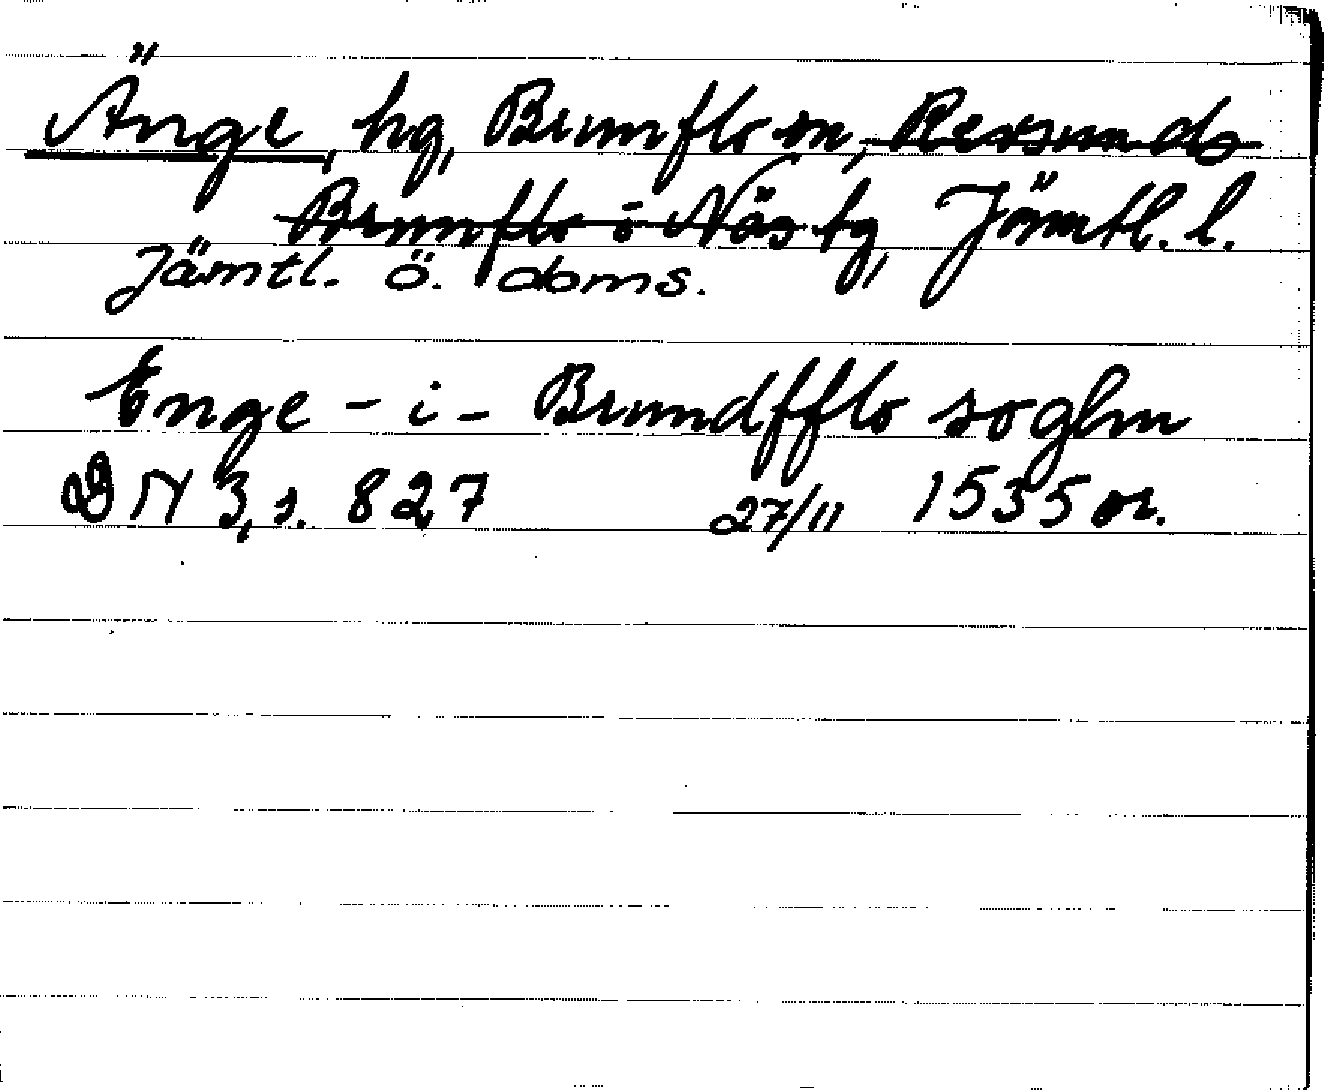 Änge, hg, Brunflo sn, Revsunds
Brunflo o Näs tg, Jämtl. l.
Jämtl. ö. doms.
Enge - i - Brundfflo soghn
DN 3, s. 827 27/11 1535 or.